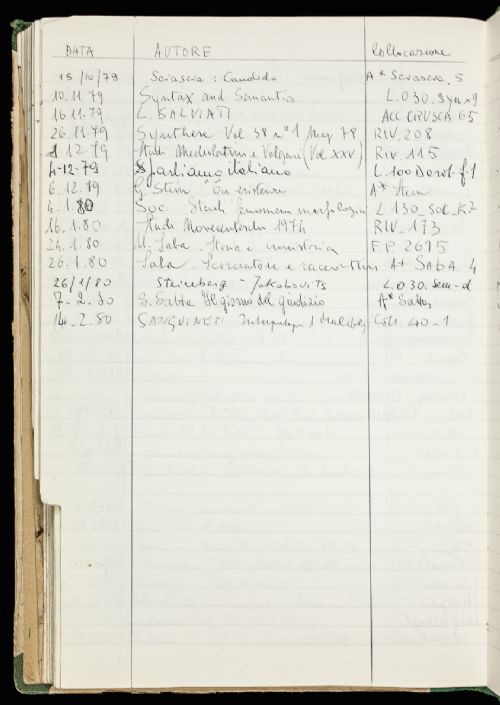 DATA AUTORE Collocazione
15/10/79 Sciascia: Candido A* Sciascia. 5
10.11.79 Syntax and Semantics L.030.Syn.9
16.11.79 L. SALVIATI ACC. CRUSCA 65
26.11.79 Synthese Vol 38 n°1 May 78 RIV. 208
1.12.79 Studi Mediolatini e Volgari (Vol XXV) RIV. 115
4-12-79 Parliamo italiano L.100
6.12.79 G. Stein A* Stein
4.1.80 Soc. Studi fenomeni morfologici L.130
16.1.80 Studi Novecenteschi 1974 RIV. 173
24.1.80 U. Saba. F.P. 2695
26.1.80 Saba. Scorciatoie e raccontini A* SABA. 4
26/1/80 Steinberg - Jakobovits L.030. sem-d
7-2.80 S. Satta Il giorno del giudizio A* Satta
14.2.80 SANGUINETI 40-1